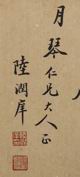 月琴仁兄大人正
陸潤庠